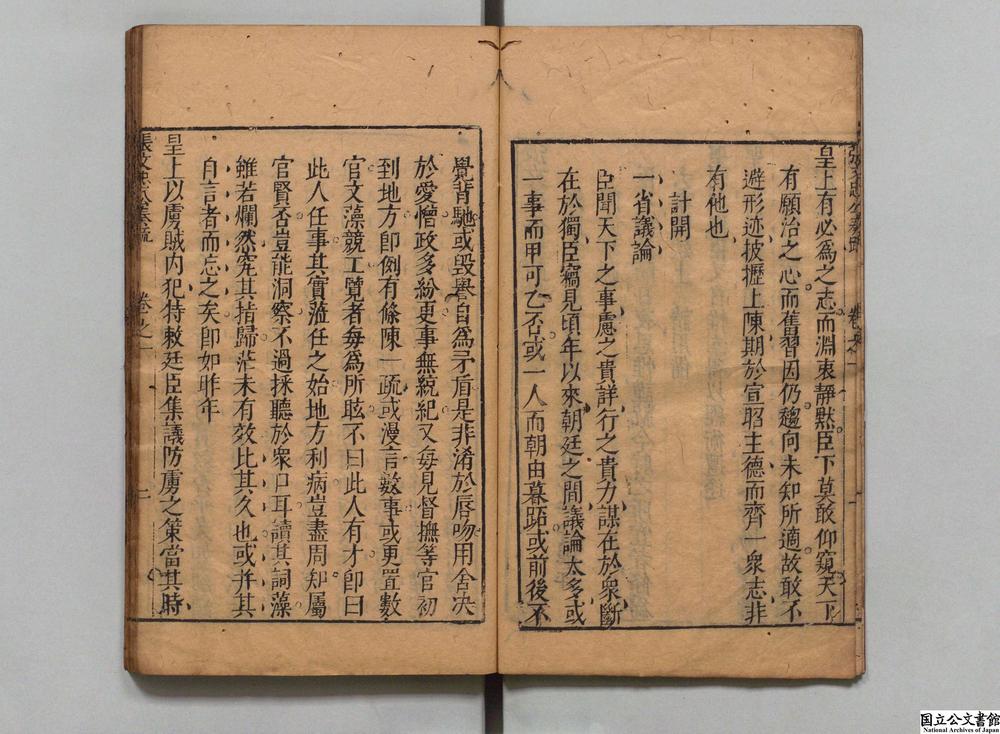 皇上有必為之志而淵衷靜默臣下莫敢仰窺天下
有願治之心而舊習因仍趨向未知所適故敢不
避形迹披攊上陳期於宣昭主德而齊一衆志非
有他也
計開
一省議論
臣聞天下之事慮之貴詳行之貴力謀在於衆斷
在於獨臣竊見頃年以來朝廷之間議論太多或
一事而甲可乙否或一人而朝由暮跖或前後不
覺背馳或毀譽自為矛盾是非淆於唇吻用舍决
於愛憎政多紛更事無統紀又每見督撫等官初
到地方即例有條陳一疏或漫言數事或更置數
官文藻競工覽者每為所眩不曰此人有才即曰
此人任事其實蒞任之始地方利病豈盡周知屬
官賢否豈能洞察不過採聽於衆口耳讀其詞藻
雖若爛然究其指歸茫未有效比其久也或并其
自言者而忘之矣即如昨年
皇上以虜賊內犯特敕廷臣集議防虜之策當其時
張文忠公奏疏
卷之一
二
国立公文書館
National Archives of Japan